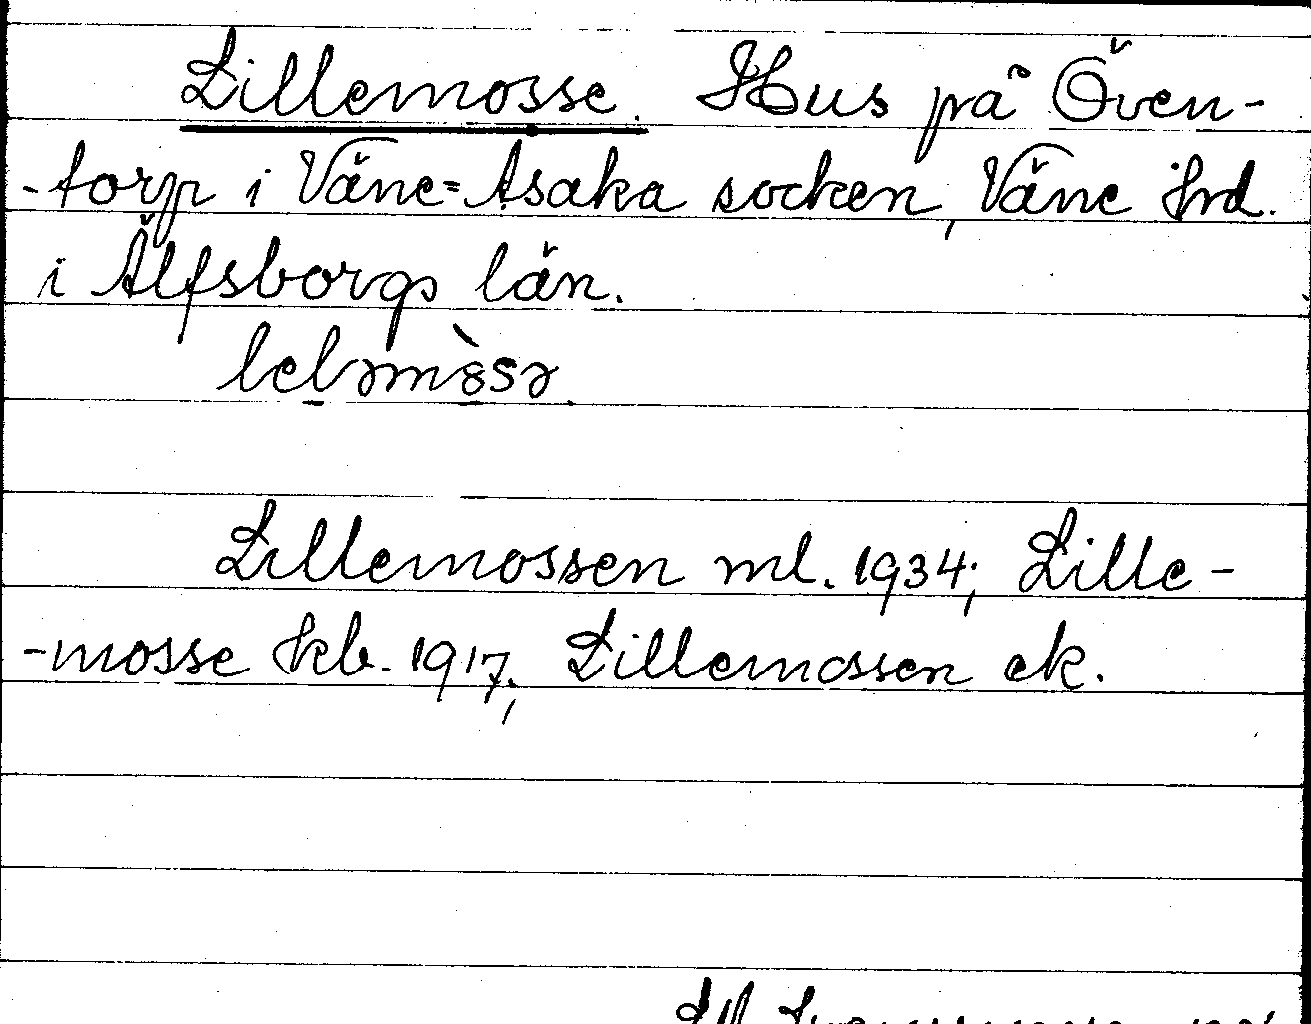 Lillemosse. Hus på Öven-
-torp i Väne=Åsaka socken, Väne hrd.
i Älfsborgs län.
Lillemossen ml. 1934; Lille-
-mosse kb. 1917; Lillemossen ek.